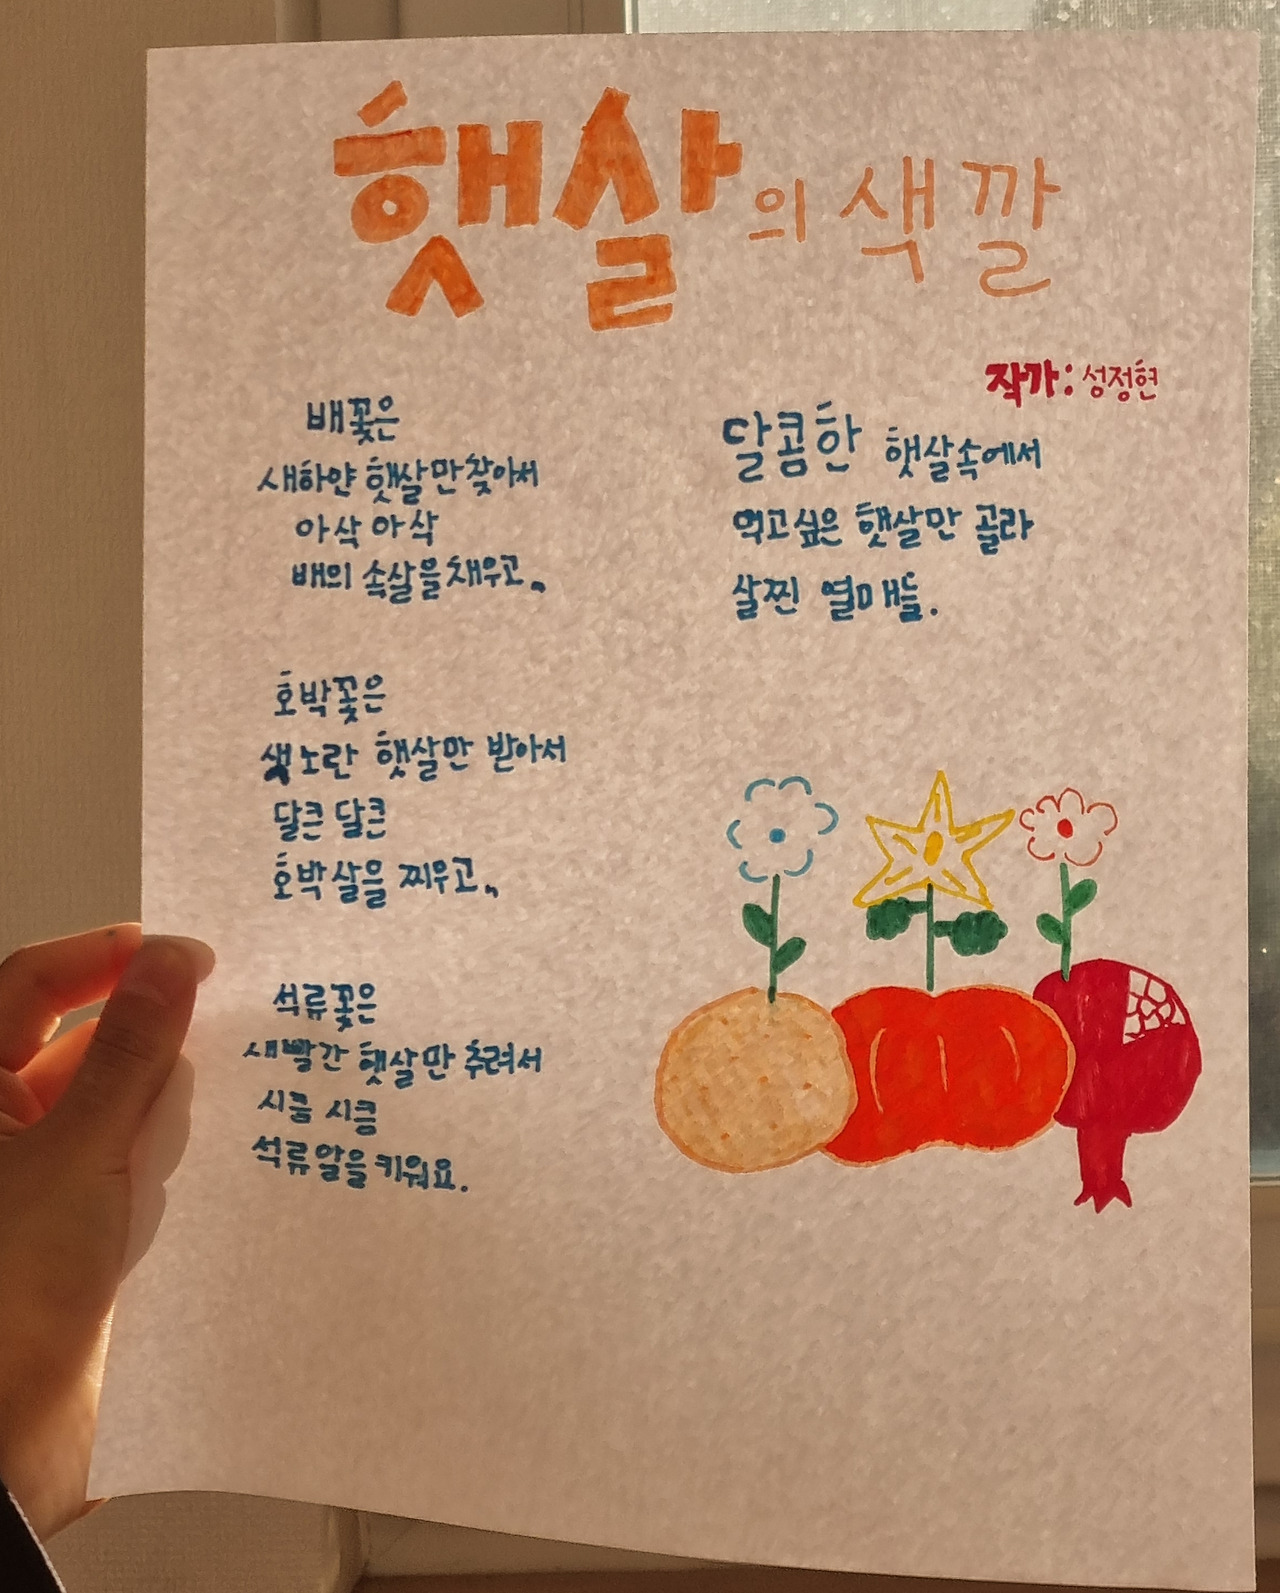 햇살의 색깔
작가: 성정현
배꽃은
새하얀 햇살만 찾아서
아삭 아삭
배의 속살을 채우고,,
호박꽃은
샛노란 햇살만 받아서
달큰 달큰
호박살을 찌우고,,
석류꽃은
새빨간 햇살만 추려서
시큼 시큼
석류알을 키워요.
달콤한 햇살속에서
먹고싶은 햇살만 골라
살찐 열매들.